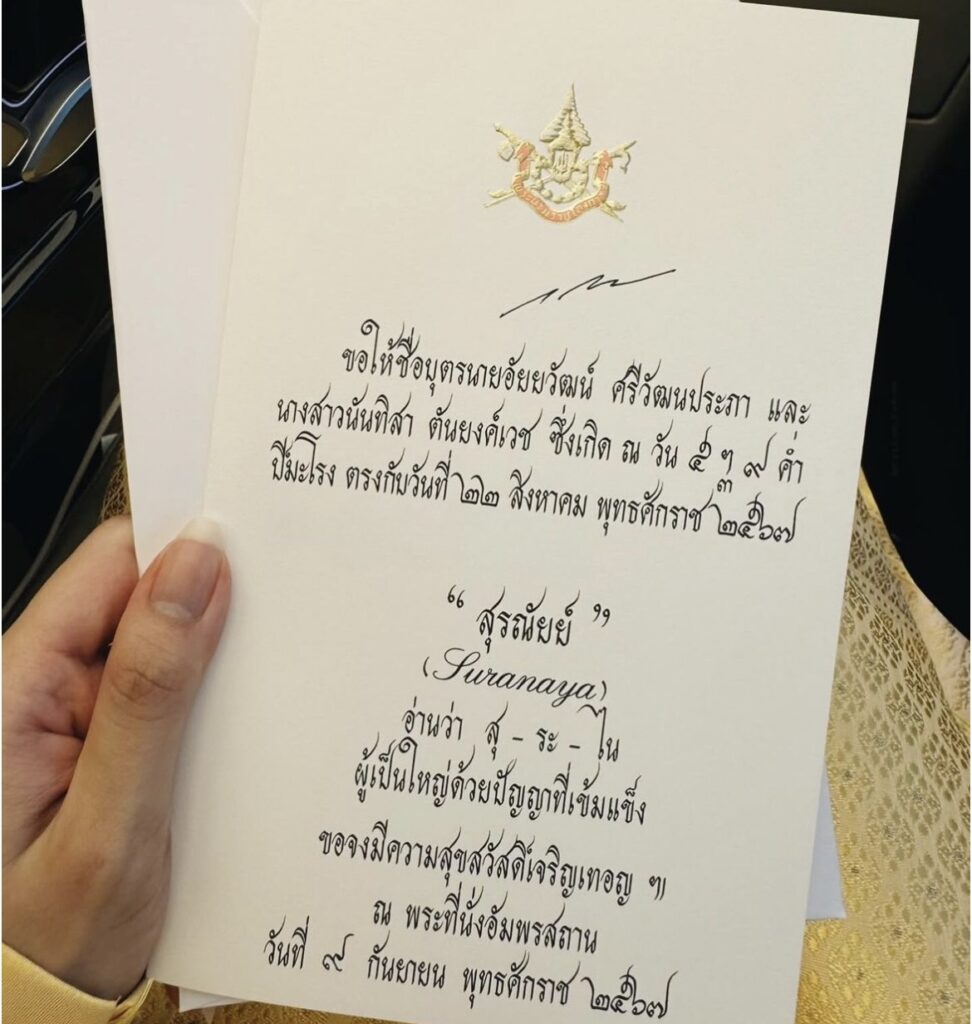 ขอให้ชื่อบุตรนายอัยยวัฒน์ ศรีวัฒนประภา และ
นางสาวนันทิสา ตันยงค์เวช ซึ่งเกิด ณ วัน ๕ ฯ ๓ ๙ ค่ำ
ปีมะโรง ตรงกับวันที่ ๒๒ สิงหาคม พุทธศักราช ๒๕๖๗
“ สุรณัยย์ ”
(Suranaya)
อ่านว่า สุ - ระ - ไน
ผู้เป็นใหญ่ด้วยปัญญาที่เข้มแข็ง
ขอจงมีความสุขสวัสดิ์เจริญเทอญ ฯ
ณ พระที่นั่งอัมพรสถาน
วันที่ ๙ กันยายน พุทธศักราช ๒๕๖๗